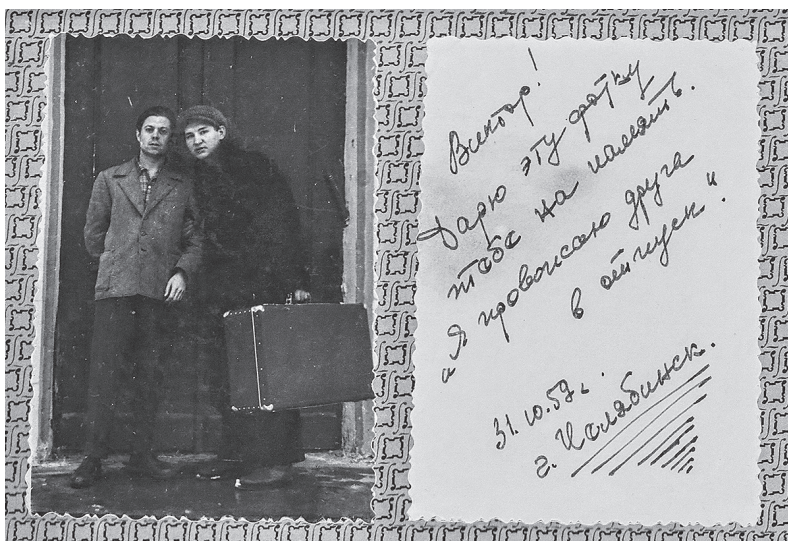 Виктор!
Дарю эту фотку
тебе на память.
"Я провожаю друга
в отпуск".
31.10.57г.
г. Челябинск.